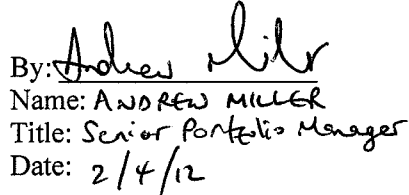 By: Andrew Miller
Name: ANDREW MILLER
Title: Senior Portfolio Manager
Date: 2/4/12